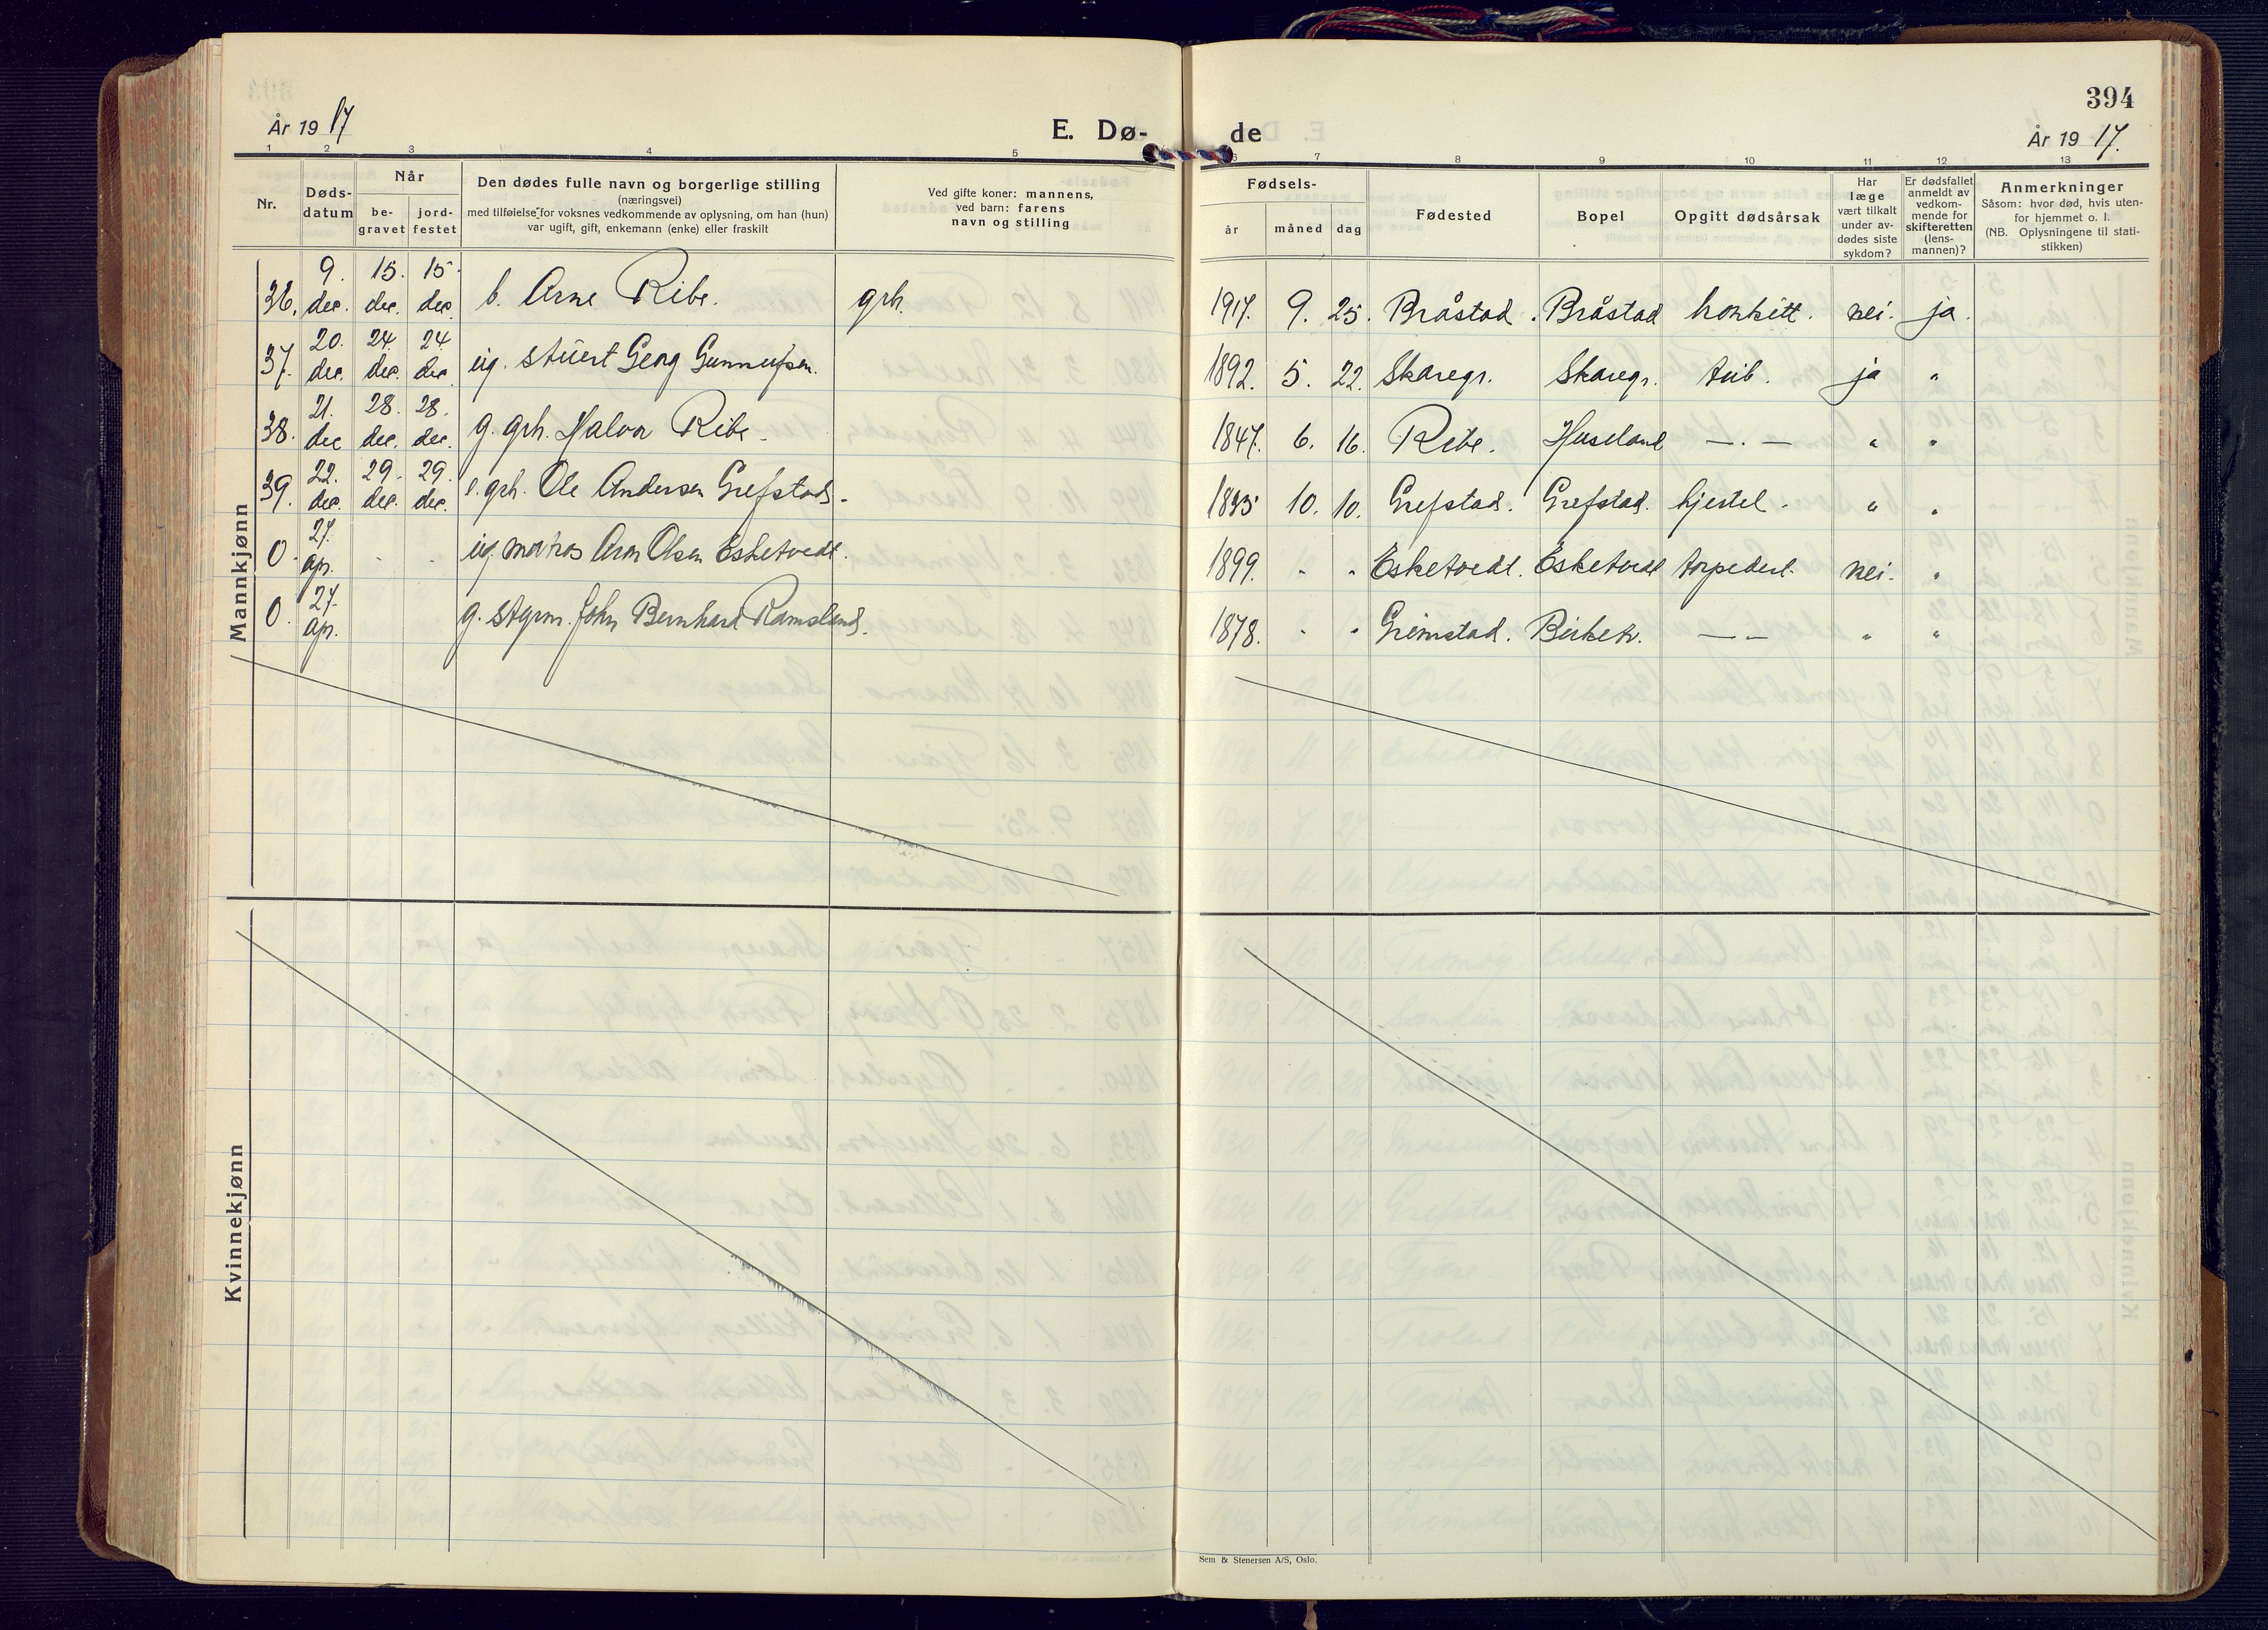 394
År 19 17
E. Dø-
de
År 19 17.
1 2 3 4 5 6 7 8 9 10 11 12 13
Nr.
Døds-
datum
Når
be-
gravet
jord-
festet
Den dødes fulle navn og borgerlige stilling
(næringsvei)
med tilføielse for voksnes vedkommende av oplysning, om han (hun)
var ugift, gift, enkemann (enke) eller fraskilt
Ved gifte koner: mannens,
ved barn: farens
navn og stilling
Fødsels-
år måned dag
Fødested
Bopel
Opgitt dødsårsak
Har
læge
vært tilkalt
under av-
dødes siste
sykdom?
Er dødsfallet
anmeldt av
vedkom-
mende for
skifteretten
(lens-
mannen)?
Anmerkninger
Såsom: hvor død, hvis uten-
for hjemmet o. l.
(NB. Oplysningene til stati-
stikken)
Mannkjønn
36. 9. dec. 15. dec. 15. dec. b. Arne Ribe. grh. 1917. 9. 25. Bråstad. Bråstad bronkitt. nei. ja.
37. 20. dec. 24. dec. 24. dec. ug. stuert Georg Gunnufsen. 1892. 5. 22. Skaregr. Skaregr. tub. ja "
38. 21. dec 28. dec. 28. dec. g. grh. Halvor Ribe. 1847. 6. 16. Ribe. Huseland —.— " "
39. 22. dec. 29. dec. 29. dec. e. grh. Ole Andersen Grefstad. 1835 10. 10. Grefstad. Grefstad. hjertel. " "
0. 27. ap. - - ug. matros Aron Olsen Esketvedt. 1899. - - Esketvedt. Esketvedt torpedert. nei. "
0. 27. ap. g. styrm. John Bernhard Ramsland. 1878. - - Grimstad. Birketv. — — " "
Kvinnekjønn
Sem & Stenersen A/S, Oslo.